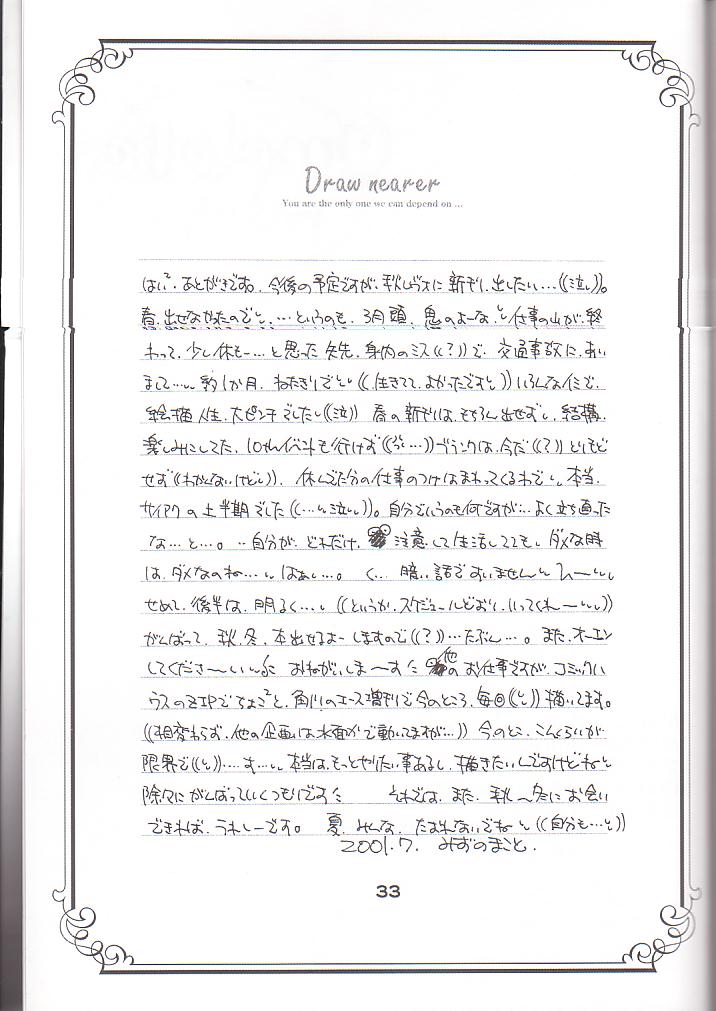 Draw nearer
You are the only one we can depend on ...
はい、あとがきです。今後の予定ですが、秋レヴォに新刊、出したい…((泣))。
春、出せなかったので、…というのも、3月頭、鬼のよーな、仕事の山が、終
わって、少し休も…と思った矢先、身内のミス((?))で、交通事故に、あい
まして…約1か月、ねたきりで((生きてて、よかったです))いろんなイミで、
絵描人生、大ピンチでした((泣)) 春の新刊は、もちろん出せずし、結構、
楽しみにしてた、イベントも行けず((…))ブランクは、今だ((?))とりもど
せず((わかんないけど))、休んでた分の仕事のつけはまわってくるわで、本当、
サイアクの上半期でした((…泣))。自分でいうのも何ですが…よく立ち直った
な…と…。…自分が、どれだけ、注意して生活してても、ダメな時
は、ダメなのね…はぁ…。く…暗い話ですいません
せめて、後半は、明るく…((というか、スケジュールどおり、いってくれー))
がんばって、秋、冬、本出せるよーしますので((?))…たぶん…。また、オーエン
してくださーいー おねがいしまーす 他のお仕事ですが、コミックハ
ウスのZIPでちょこっと、角川のエース増刊で今のところ、毎回 描いてます。
((相変わらず、他の企画は水面下で動いてますが…)) 今のとこ、こんくらいが、
限界で…す…本当は、もっとやりたい事あるし、描きたいんですけどね
除々にがんばっていくつもりです それでは、また、秋〜冬にお会い
できれば、うれしーです。 夏、みんな、たおれないでね ((自分も…))
2001.7. みずのまこと.
33